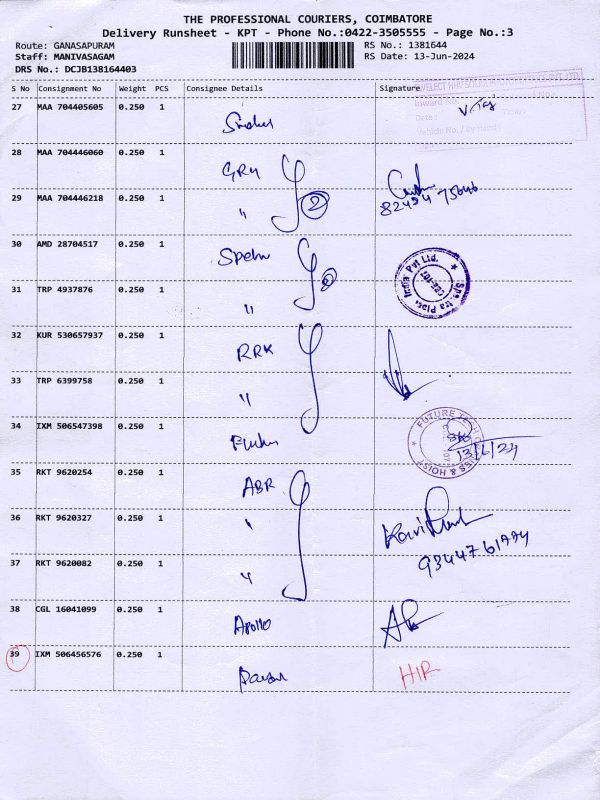 THE PROFESSIONAL COURIERS, COIMBATORE
Delivery Runsheet - KPT - Phone No.:0422-3505555 - Page No.:3
Route: GANASAPURAM RS No.: 1381644
Staff: MANIVASAGAM RS Date: 13-Jun-2024
DRS No.: DCJB138164403
S No Consignment No Weight PCS Consignee Details Signature
27 MAA 704405605 0.250 1
Inward No.
Date :
Vehicle No. / By Hand
28 MAA 704446060 0.250 1 GRH
29 MAA 704446218 0.250 1 " 2
30 AMD 28704517 0.250 1
India Pvt Ltd.
31 TRP 4937876 0.250 1 "
32 KUR 530657937 0.250 1 RRK
33 TRP 6399758 0.250 1 "
34 IXM 506547398 0.250 1
FUTURE TECH
& HOIST
13/6/24
35 RKT 9620254 0.250 1 ABR
36 RKT 9620327 0.250 1 "
37 RKT 9620082 0.250 1 "
38 CGL 16041099 0.250 1 Apollo
39 IXM 506456576 0.250 1